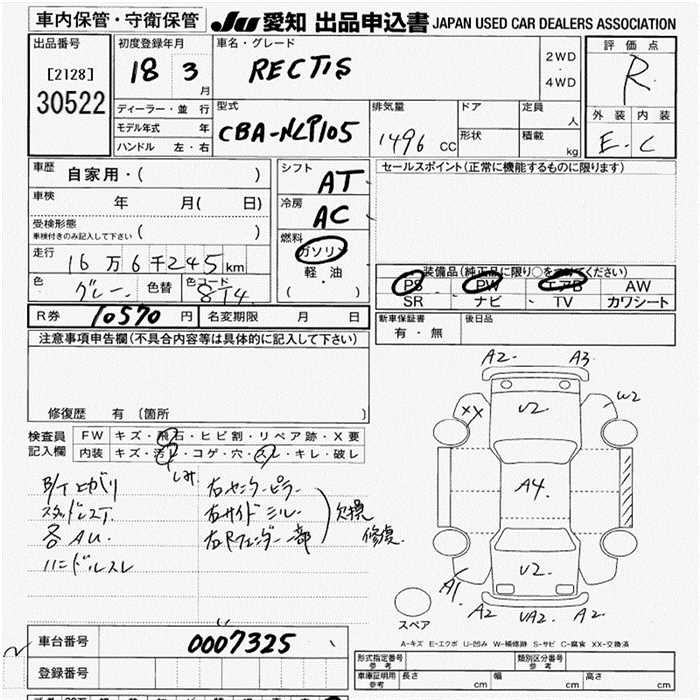 車内保管・守衛保管 JU 愛知 出品申込書 JAPAN USED CAR DEALERS ASSOCIATION
出品番号 初度登録年月 車名・グレード 評価点
[2128] 18 3 月 RECTIS 2WD ・ 4WD R
30522 ディーラー・並行 型式 排気量 ドア 定員 人 外装 内装
モデル年式 年 CBA-NCP105 1496 CC 形状 積載 kg E C
ハンドル 左・右
車歴 自家用・( ) シフト AT セールスポイント(正常に機能するものに限ります)
車検 年 月( 日) 冷房 AC
受検形態
車検付きのみ記入して下さい ( ) 燃料 ガソリン
走行 16万6千245km 軽・油
色 グレー 色替 色コード 8T4 ( ・ )
装備品(純正品に限り○をつけてください)
PS PW エアB AW
SR ナビ TV カワシート
R券 10570 円 名変期限 月 日 新車保証書 有・無 後日品
注意事項申告欄(不具合内容等は具体的に記入して下さい)
修復歴 有 (箇所 )
A2 A3
XX U2 W2
A4
U2
A1 A2 UA2 A2
スペア
検査員 FW キズ・飛石・ヒビ割・リペア跡・X要
記入欄 内装 キズ・汚レ・コゲ・穴・スレ・キレ・破レ
しみ
右センターピラー
右サイドシル
右Rフェンダー部
欠損
修復
各AU
ハンドルスレ
A-キズ E-エクボ U-凹み W-補修跡 S-サビ C-腐食 XX-交換済
車台番号 0007325
登録番号
形式指定番号 参考 類別区分番号 参考
車庫証明用 参考 長さ cm 幅 cm 高さ cm